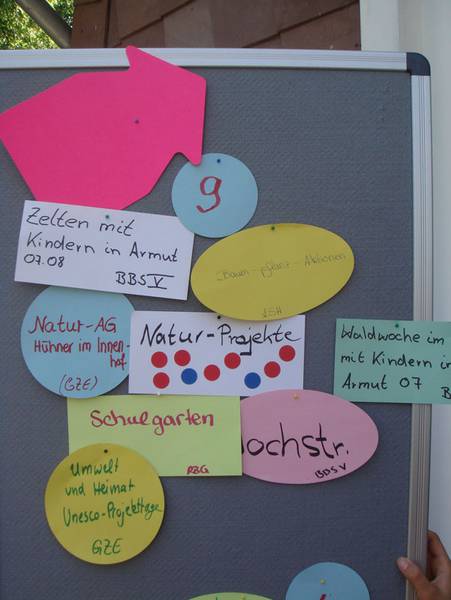 9
Zelten mit
Kindern in Armut
07.08
BBS V
Baum-pflanz-Aktionen
Natur-AG
Hühner im Innen-
hof
(GZE)
Natur-Projekte
Waldwoche im
mit Kindern in
Armut 07
B
Schulgarten
RBG
ochstr.
BBS V
Umwelt
und Heimat
Unesco-Projekttage
GZE